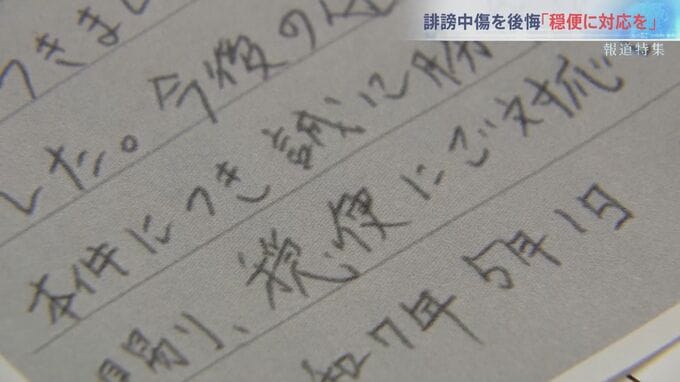 誹謗中傷を後悔「穏便に対応を」
報道特集
つきまし
した。今後の
本件につき誠に勝
易り、穏便にご対応
和7年5月1日